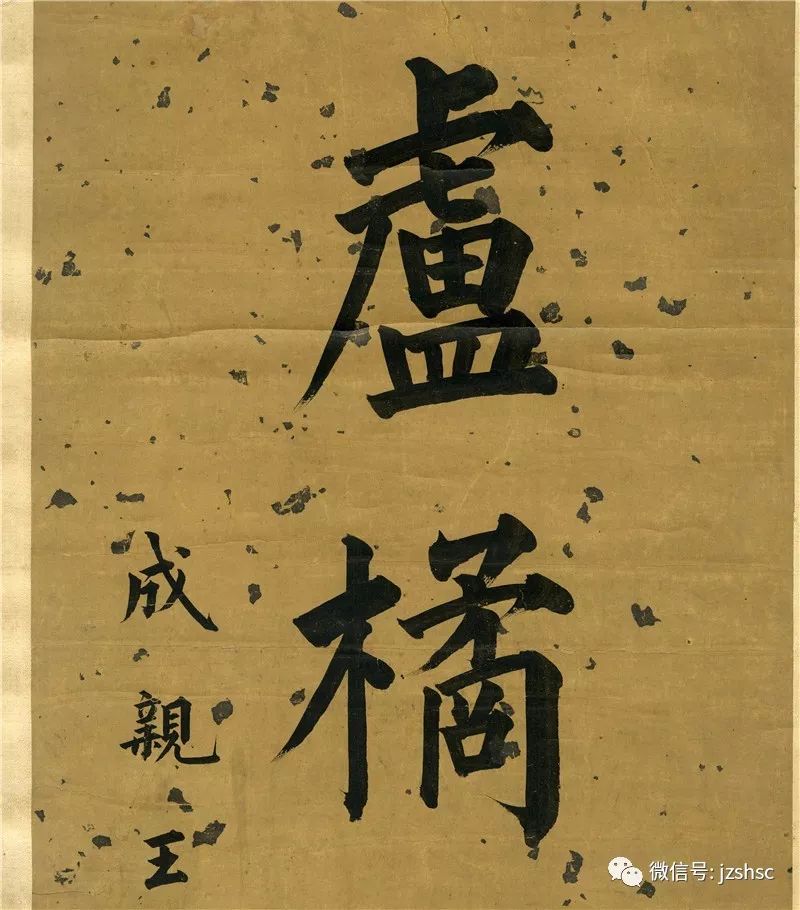 盧橘
成親王
微信号: jzshsc